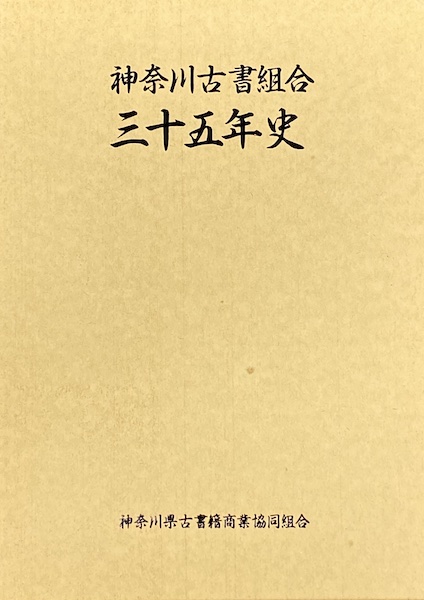 神奈川古書組合
三十五年史
神奈川県古書籍商業協同組合